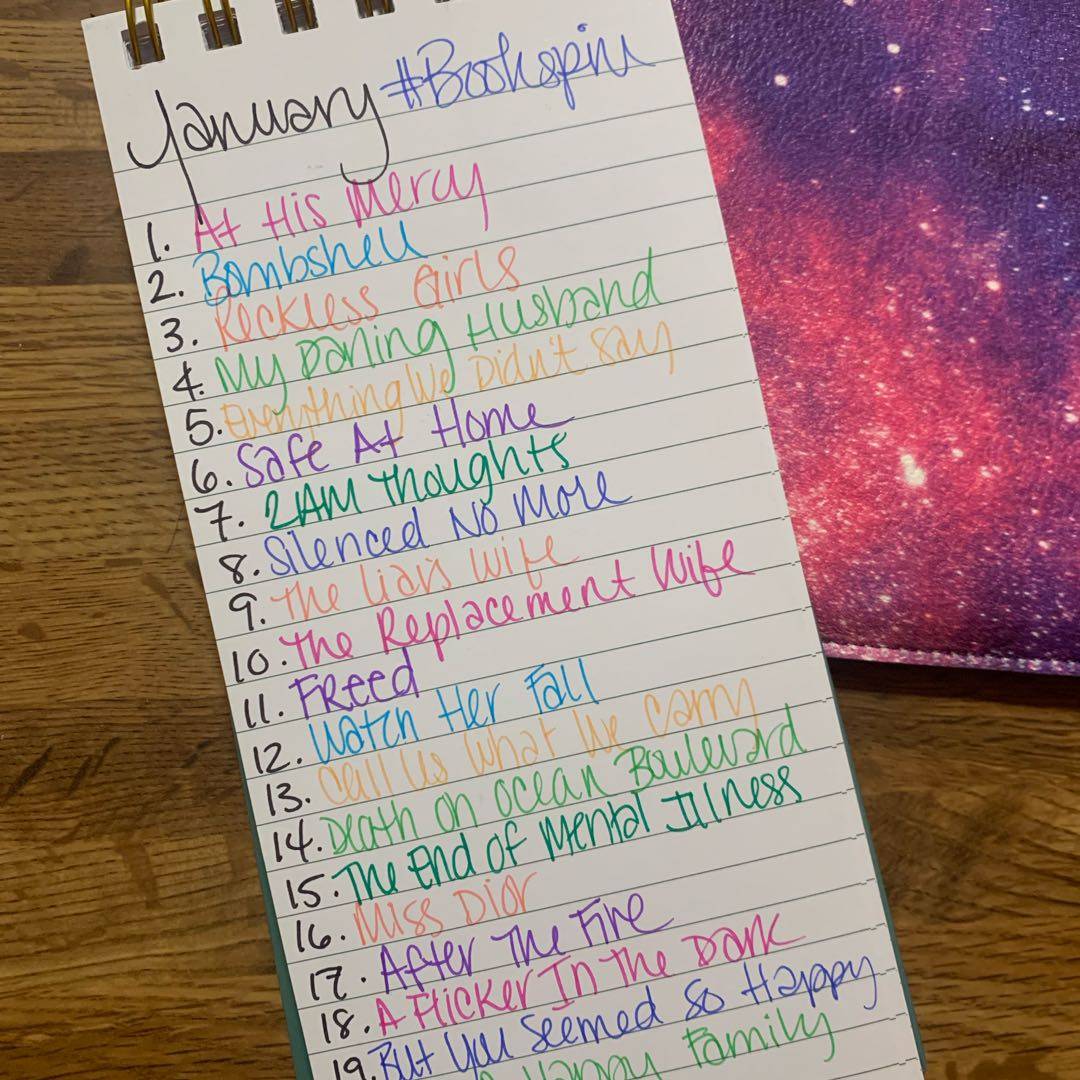 January #Bookspin
1. At His Mercy
2. Bombshell
3. Reckless Girls
4. My Darling Husband
5. Everything We Didn't Say
6. Safe At Home
7. 2AM Thoughts
8. Silenced No More
9. The Liar's Wife
10. The Replacement Wife
11. Freed
12. Watch Her Fall
13. Call Us What We Carry
14. Death on Ocean Boulevard
15. The End Of Mental Illness
16. Miss Dior
17. After The Fire
18. A Flicker In The Dark
19. But You Seemed So Happy
Happy Family